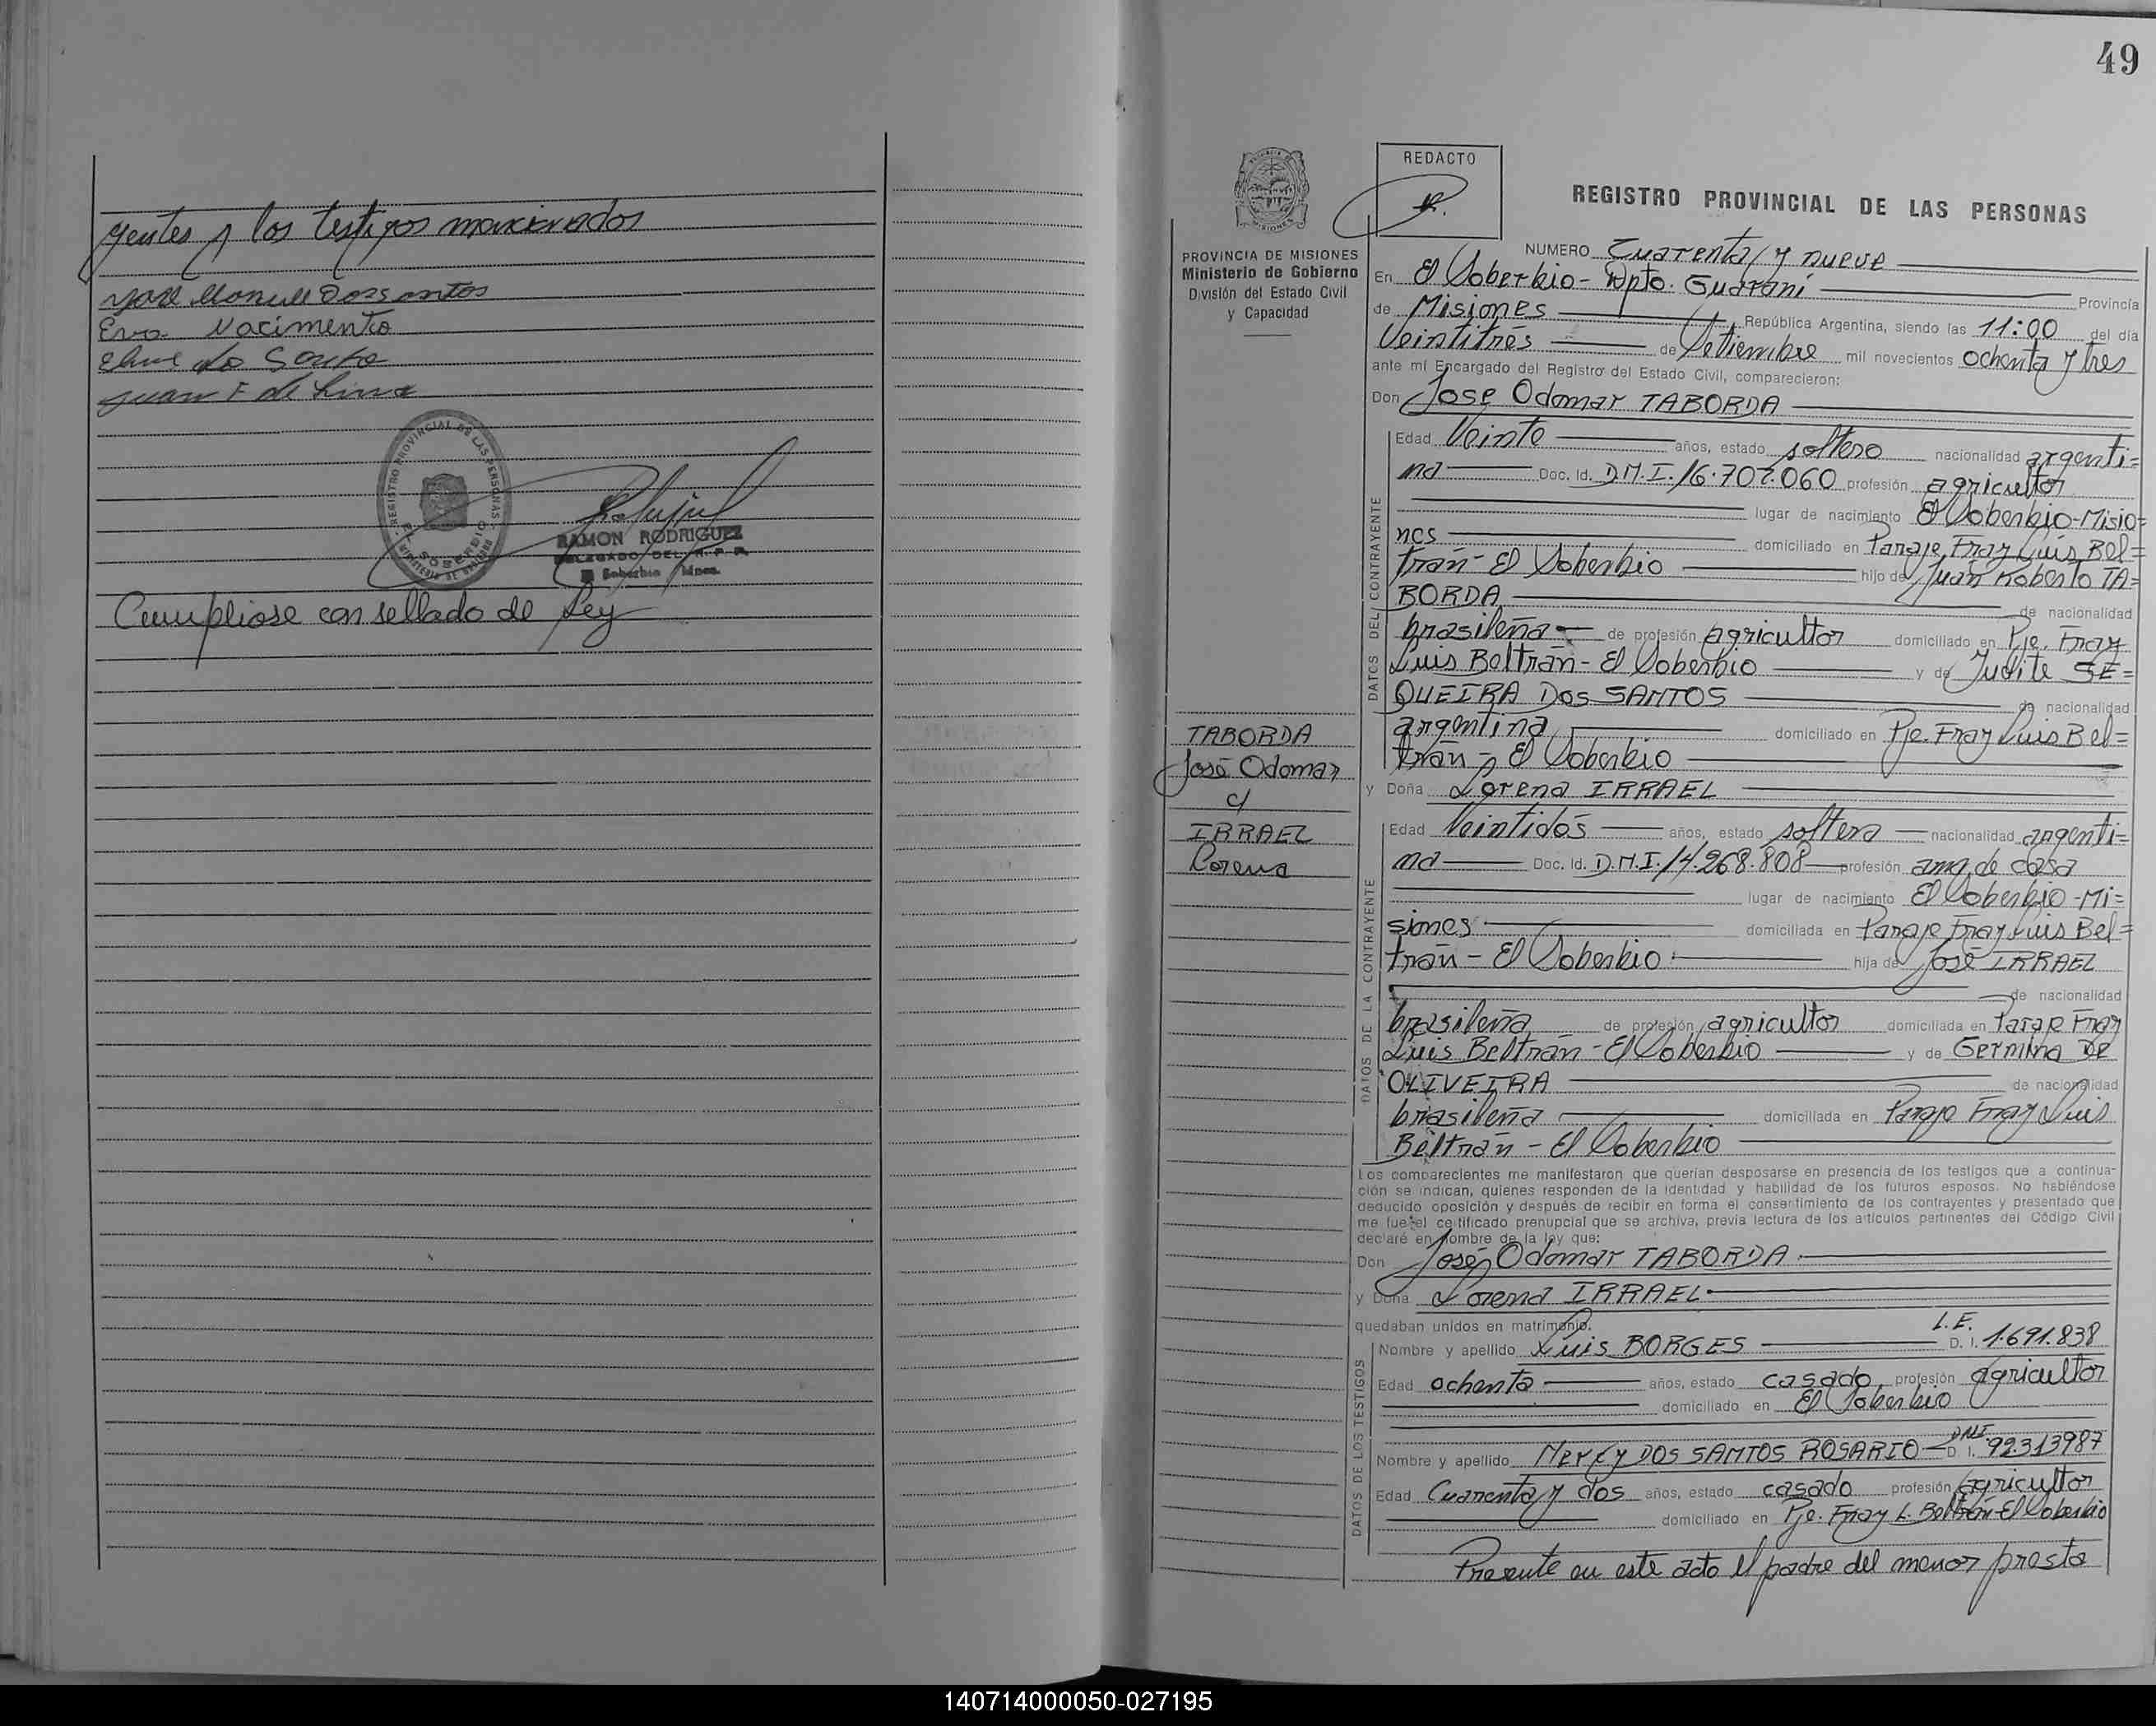 yentes y los testigos mencionados
José Manuel Dos santos
Eva Nacimento
Juan F de Lima
REGISTRO PROVINCIAL DE LAS PERSONAS
SOBERBIO
RAMON RODRIGUEZ
DELEGADO DEL R. P. P.
El Soberbio Mnes.
Cumpliose con sellado de Ley
49
REDACTO
REGISTRO PROVINCIAL DE LAS PERSONAS
PROVINCIA DE MISIONES
Ministerio de Gobierno
División del Estado Civil
y Capacidad
TABORDA
José Odomar
c/
IRRAEL
Lorena
NUMERO Cuarenta y nueve
En El Soberbio - Dpto. Guaraní Provincia
de Misiones República Argentina, siendo las 11:00 del día
Veintitrés de Setiembre mil novecientos ochenta y tres
ante mí Encargado del Registro del Estado Civil, comparecieron:
Don José Odomar TABORDA
DATOS DEL CONTRAYENTE
Edad Veinte años, estado soltero nacionalidad argenti=
na Doc. Id. D.N.I. 16.707.060 profesión agricultor
lugar de nacimiento El Soberbio-Misio=
nes domiciliado en Paraje Fray Luis Bel=
trán - El Soberbio hijo de Juan Roberto TA=
BORDA de nacionalidad
brasileña de profesión agricultor domiciliado en Pje. Fray
Luis Beltrán - El Soberbio y de Judite SE=
QUEIRA DOS SANTOS de nacionalidad
argentina domiciliado en Pje. Fray Luis Bel=
trán - El Soberbio
y Doña Lorena IRRAEL
DATOS DE LA CONTRAYENTE
Edad Veintidós años, estado soltera nacionalidad argenti=
na Doc. Id. D.N.I. 14.268.808 profesión ama de casa
lugar de nacimiento El Soberbio - Mi=
siones domiciliada en Paraje Fray Luis Bel=
trán - El Soberbio hija de José IRRAEL
de nacionalidad
brasileña de profesión agricultor domiciliada en Paraje Fray
Luis Beltrán - El Soberbio y de Germina DE
OLIVEIRA de nacionalidad
brasileña domiciliada en Paraje Fray Luis
Beltrán - El Soberbio
Los comparecientes me manifestaron que querían desposarse en presencia de los testigos que a continua-
ción se indican, quienes responden de la identidad y habilidad de los futuros esposos. No habiéndose
deducido oposición y después de recibir en forma el consentimiento de los contrayentes y presentado que
me fue el certificado prenupcial que se archiva, previa lectura de los artículos pertinentes del Código Civil
declaré en nombre de la ley que:
Don José Odomar TABORDA
y Doña Lorena IRRAEL
quedaban unidos en matrimonio.
DATOS DE LOS TESTIGOS
Nombre y apellido Luis BORGES L.E. D. I. 1.691.838
Edad ochenta años, estado casado profesión agricultor
domiciliado en El Soberbio
Nombre y apellido DOS SANTOS ROSARIO DNI D. I. 92.313987
Edad Cuarenta y dos años, estado casado profesión agricultor
domiciliado en Pje. Fray L. Beltrán-El Soberbio
Presente en este acto el padre del menor presta
140714000050-027195